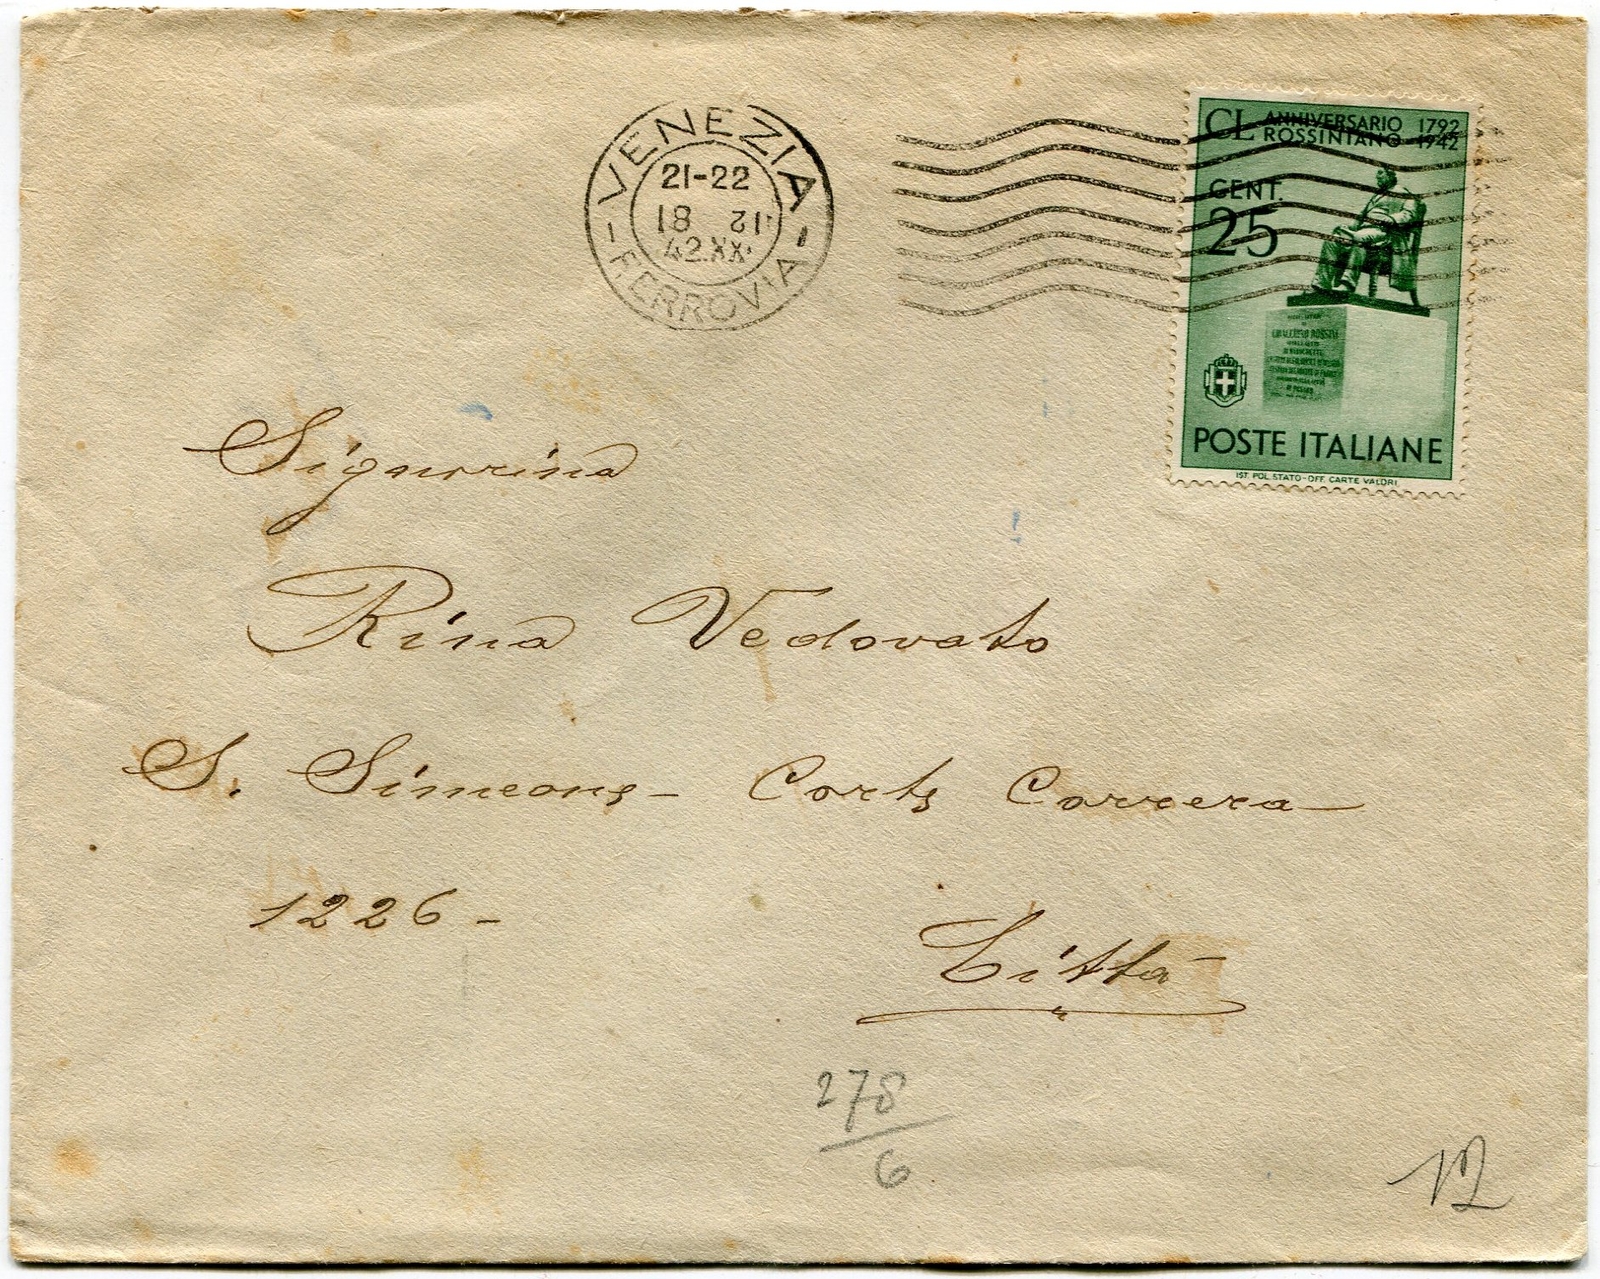 VENEZIA
21-22
18 12
42.XX
- FERROVIA -
CL ANNIVERSARIO 1792
ROSSINIANO 1942
CENT.
25
POSTE ITALIANE
IST. POL. STATO-OFF. CARTE VALORI
Signorina
Rina Vedovato
S. Simeone - Corte Correra
1226 -
Città
278
6
12